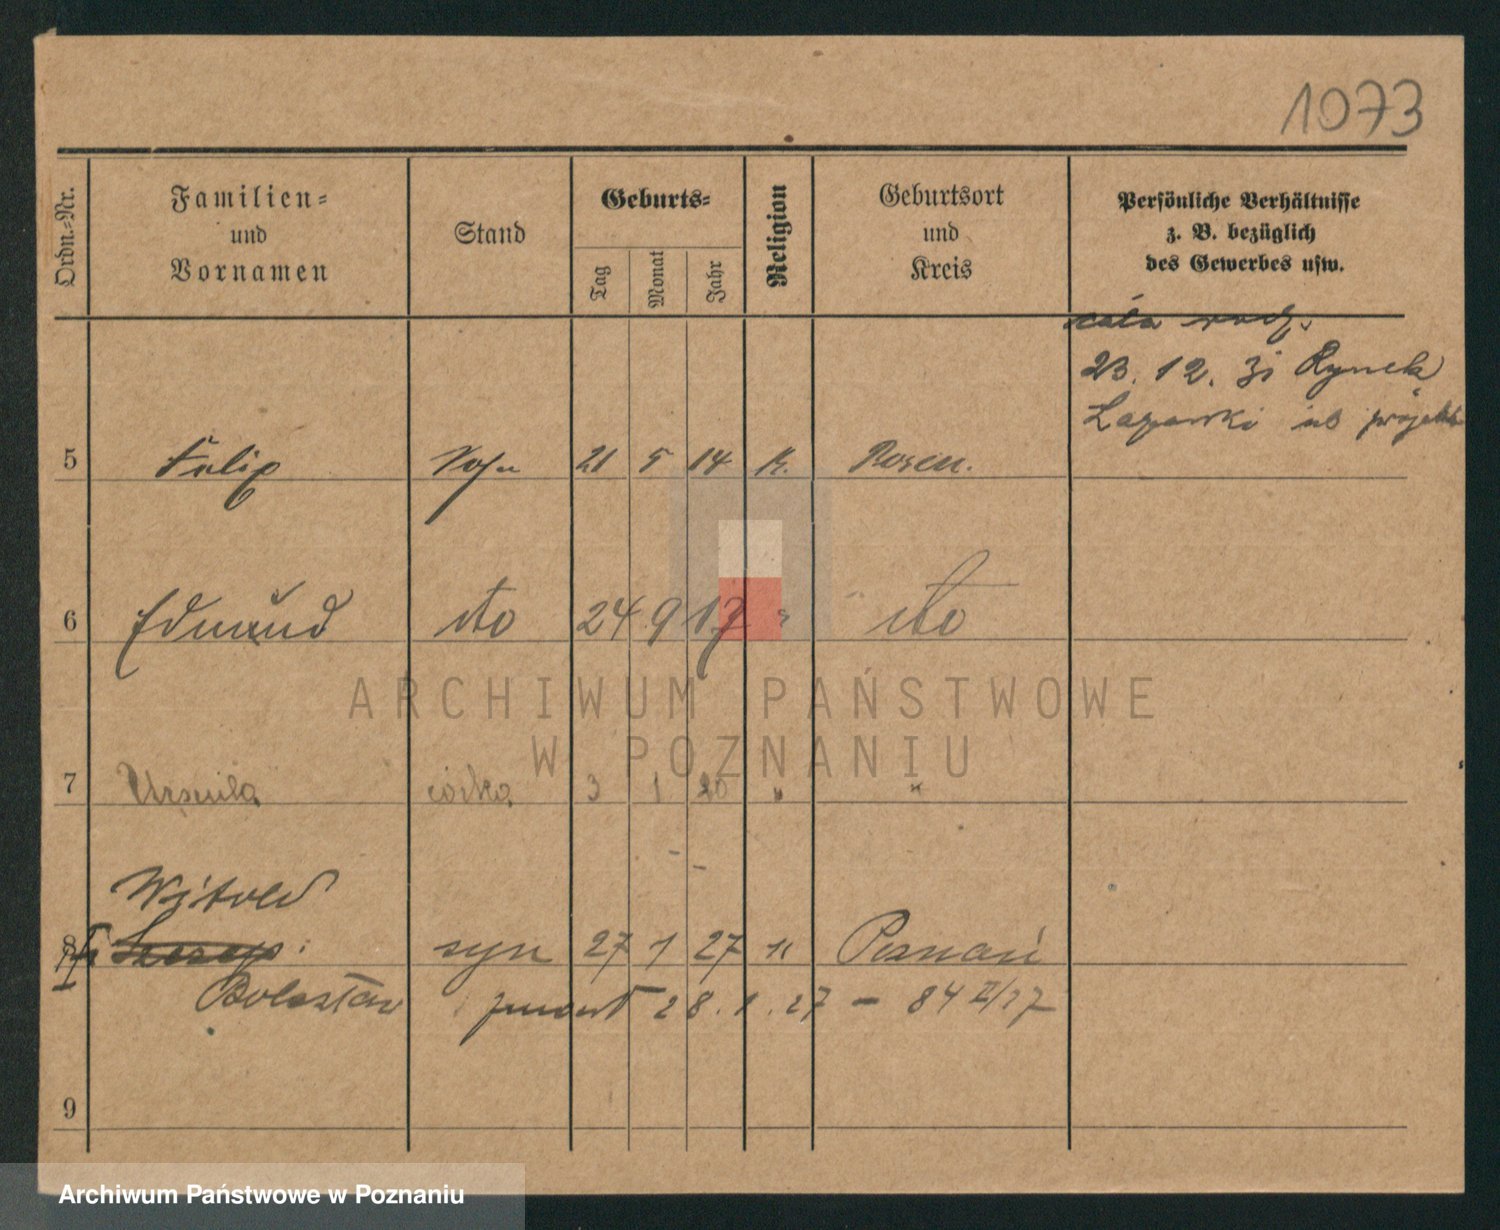 1073
Ordn.-Nr.
Familien- und Vornamen
Stand
Geburts-
Tag
Monat
Jahr
Religion
Geburtsort und Kreis
Persönliche Verhältnisse
z. B. bezüglich
des Gewerbes usw.
cała rodz.
23. 12. 31 Rynek
Łazarski
5 Filip Sohn 21 5 14 K. Posen.
6 Edmund dto 24 9 17 " dto
ARCHIWUM PAŃSTWOWE
W POZNANIU
7 Urszula córka 3 1 20 " "
Witold
8 syn 27 1 27 K Poznań
Bolesław zmarł 28. 1. 27 – 84 II/27
9
Archiwum Państwowe w Poznaniu